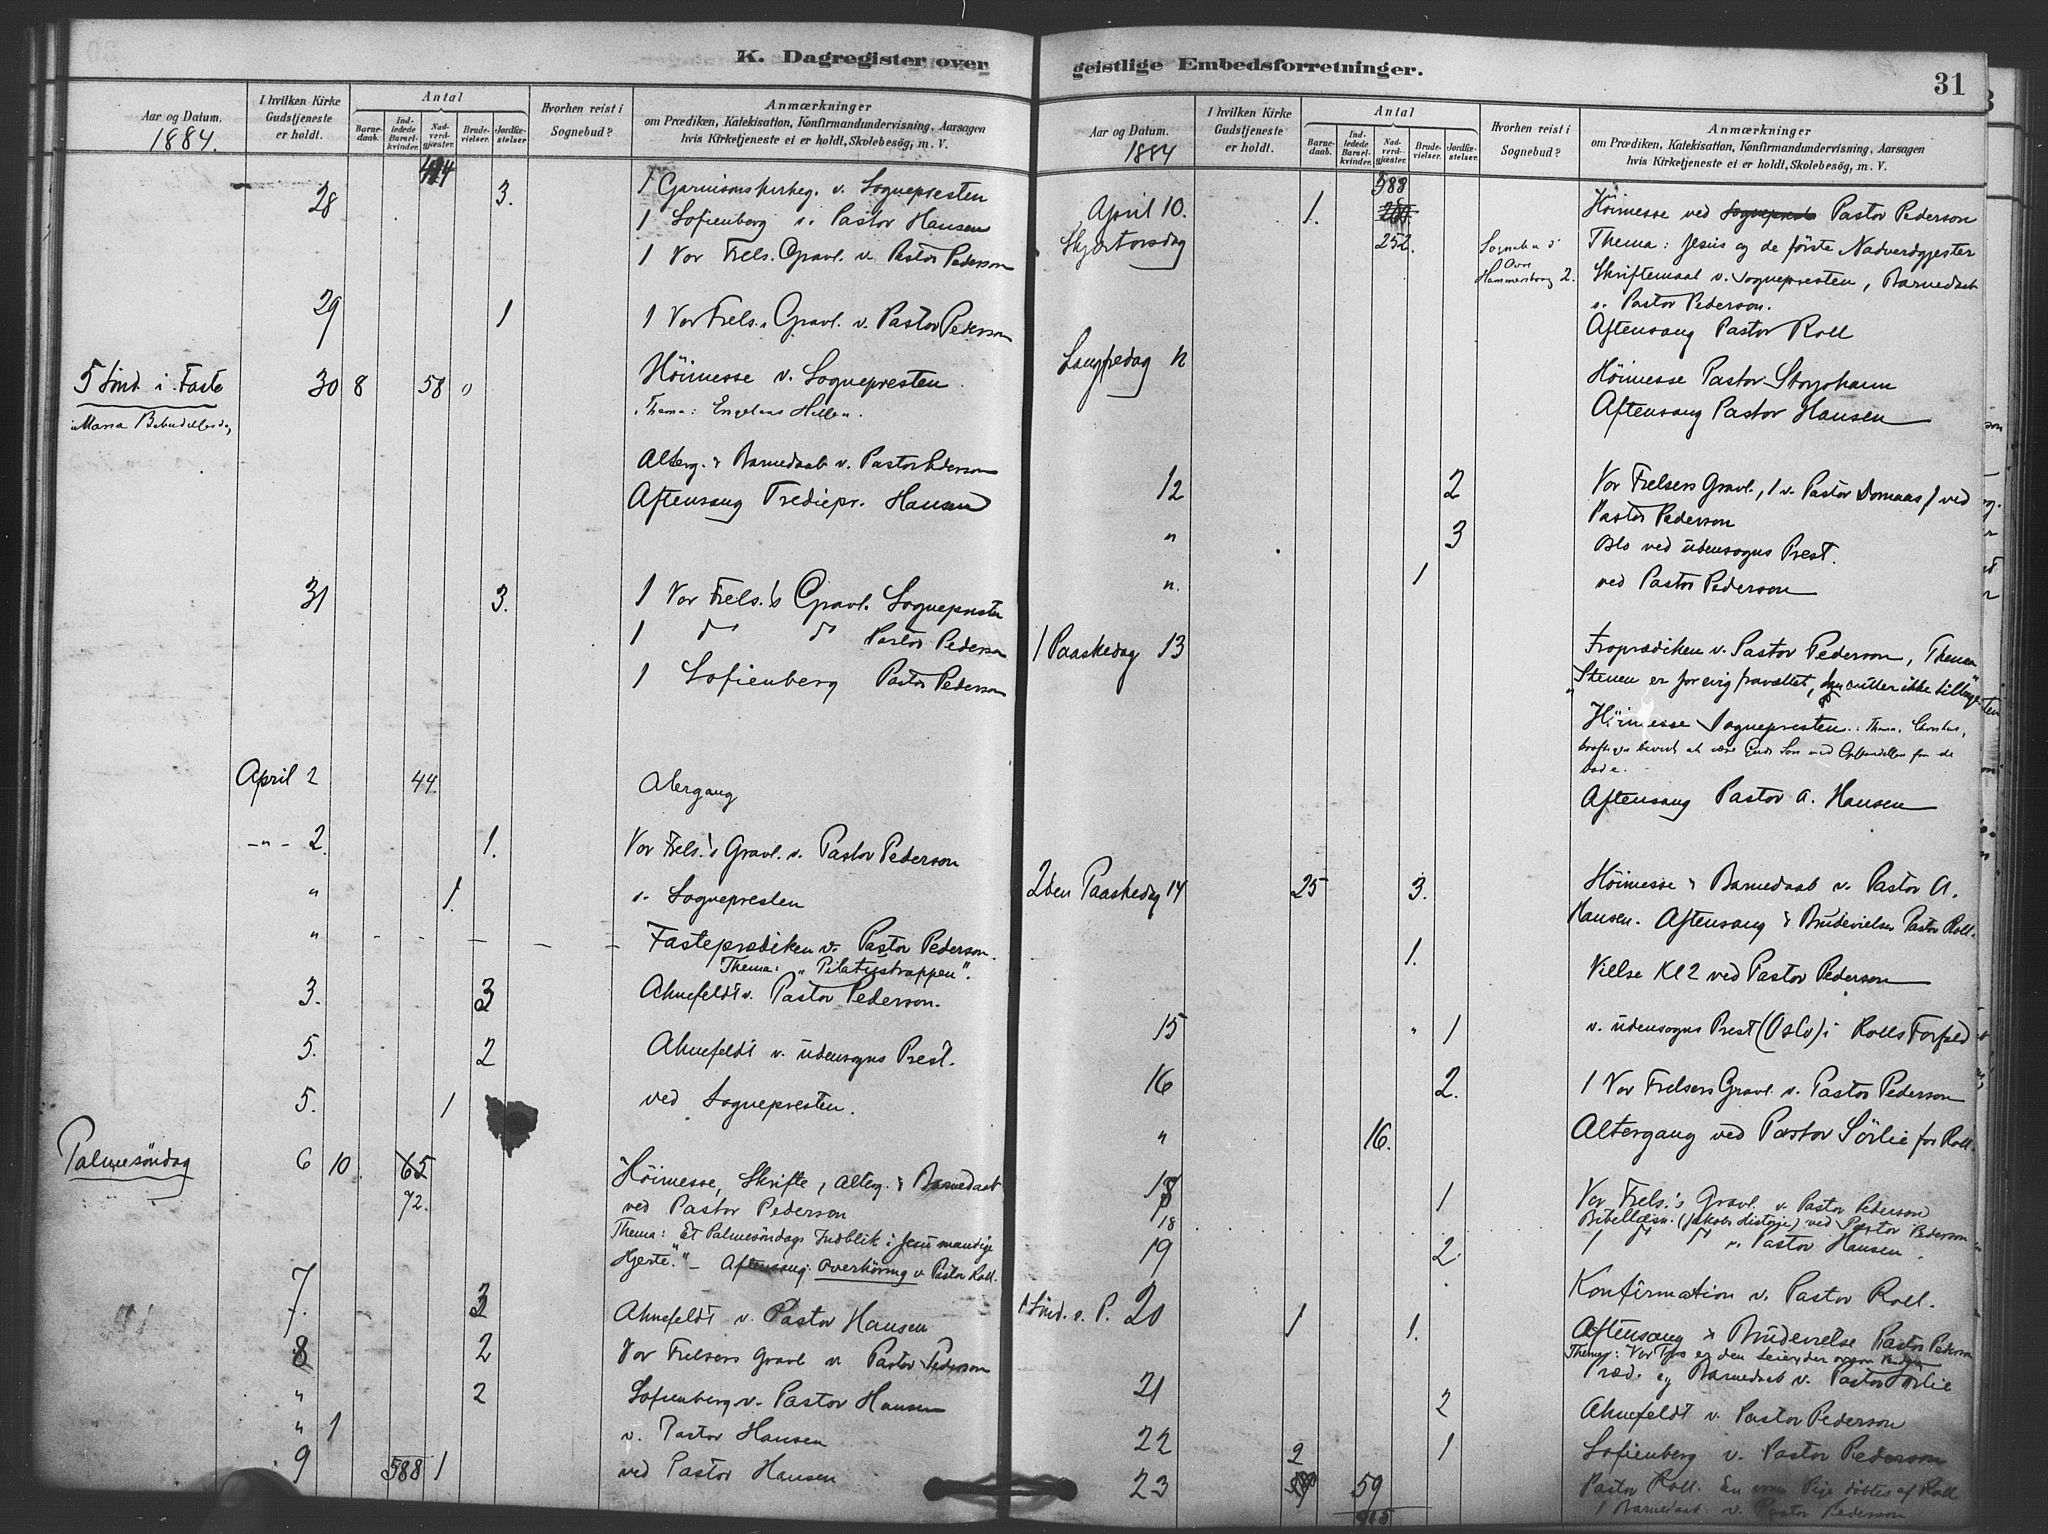 K. Dagregister over
Aar og Datum.
1884.
I hvilken Kirke Gudstjeneste er holdt.
Antal
Barnedaab.
Indledede Barselkvinder.
Nadverdgjæster.
Brudevielser.
Jordfæstelser.
Hvorhen reist i Sognebud?
Anmærkninger
om Prædiken, Katekisation, Konfirmandundervisning, Aarsagen
hvis Kirketjeneste ei er holdt, Skolebesög, m. V.
28 3. 1 Garnisonskirkeg. v. Sognepresten
1 Sofienberg v. Pastor Hansen
1 Vor Frels. Gravl. v. Pastor Pederson
29 1 1 Vor Frels. Gravl. v. Pastor Pederson
5 Sönd i Faste 30 8 58 0 Höimesse v. Sognepresten
Maria
Thema: Engelens Hilsen.
Alterg. & Barnedaab v. Pastor Pederson
Aftensang Trediepr. Hansen
31 3. 1 Vor Frels.'s Gravl. Sognepresten
1 d° d° Pastor Pederson
1 Sofienberg Pastor Pederson
April 2 44. Altergang
-"- 2. 1. Vor Frels.'s Gravl. v. Pastor Pederson
" 1. v. Sognepresten
" - - - - - - Fasteprædiken v. Pastor Pederson.
Thema: "Pilatustrappen".
3. 3 Ahnefeldt v. Pastor Pederson.
5. 2 Ahnefeldt v. udensogns Prest.
5. 1 ved Sognepresten.
Palmesöndag 6 10. 65 Höimesse, Skrifte, Alterg. & Barnedaab
72. ved Pastor Pederson
Thema: Et Palmesöndags Indblik i Jesu mandige
Hjerte." - Aftensang: Overhöring v. Pastor Roll.
7. 3 Ahnefeldt v. Pastor Hansen
8 2 Vor Frelsers Gravl v. Pastor Pederson
" 2 Sofienberg v. Pastor Hansen
" 1 v. Pastor Hansen
9 588 1 ved Pastor Hansen
geistlige Embedsforretninger.
31
Aar og Datum.
1884
I hvilken Kirke Gudstjeneste er holdt.
Antal
Barnedaab.
Indledede Barselkvinder.
Nadverdgjæster.
Brudevielser.
Jordfæstelser.
Hvorhen reist i Sognebud?
Anmærkninger
om Prædiken, Katekisation, Konfirmandundervisning, Aarsagen
hvis Kirketjeneste ei er holdt, Skolebesög, m. V.
588
April 10. 1. Höimesse ved Pastor Pederson
Skjærtorsdag 252. Thema: Jesus og de förste Nadverdgjester
Hammersborg 2. Skriftemaal v. Sognepresten, Barnedaab
v. Pastor Pederson.
Aftensang Pastor Roll
Langfredag 11 Höimesse Pastor Storjohann
Aftensang Pastor Hansen
12 2 Vor Frelsers Gravl., 1 v. Pastor Domaas 1 ved
Pastor Pederson
" 3 Oslo ved udensogns Prest.
". 1 ved Pastor Pederson
1 Paaskedag 13 Froprædiken v. Pastor Pederson, Thema
"Stenen er for evig fravæltet, ikke tilbage"
Höimesse Sognepresten. Thema: Christus,
Aftensang Pastor A. Hansen
2den Paaskedag 14 25 3. Höimesse & Barnedaab v. Pastor A.
Hansen. Aftensang & Brudevielser Pastor Roll.
1. Vielse Kl 2 ved Pastor Pederson
15 " 1 v. udensogns Prest (Oslo) i Rolls Forfald
16 2. 1 Vor Frelsers Gravl. v. Pastor Pederson
" 16. Altergang ved Pastor Sörlie for Roll.
1 Vor Frels.'s Gravl. v. Pastor Pederson
18 Bibellæsn. (Jakobs Historje) ved Pastor Pederson
19 2. 1 d° d° v. Pastor Hansen.
Konfirmation v. Pastor Roll.
1 Sönd. e. P. 20 1 1. Aftensang & Brudevielse Pastor Pederson
Thema: Vor Tro er den Seier der
Præd. og Barnedaab v. Pastor Sörlie
21 2 Ahnefeldt v. Pastor Pederson
22 2 1 Sofienberg v. Pastor Pederson
23 59 Pastor Roll. En voxen Pige döbtes af Roll
915 1 Barnedaab v. Pastor Pederson